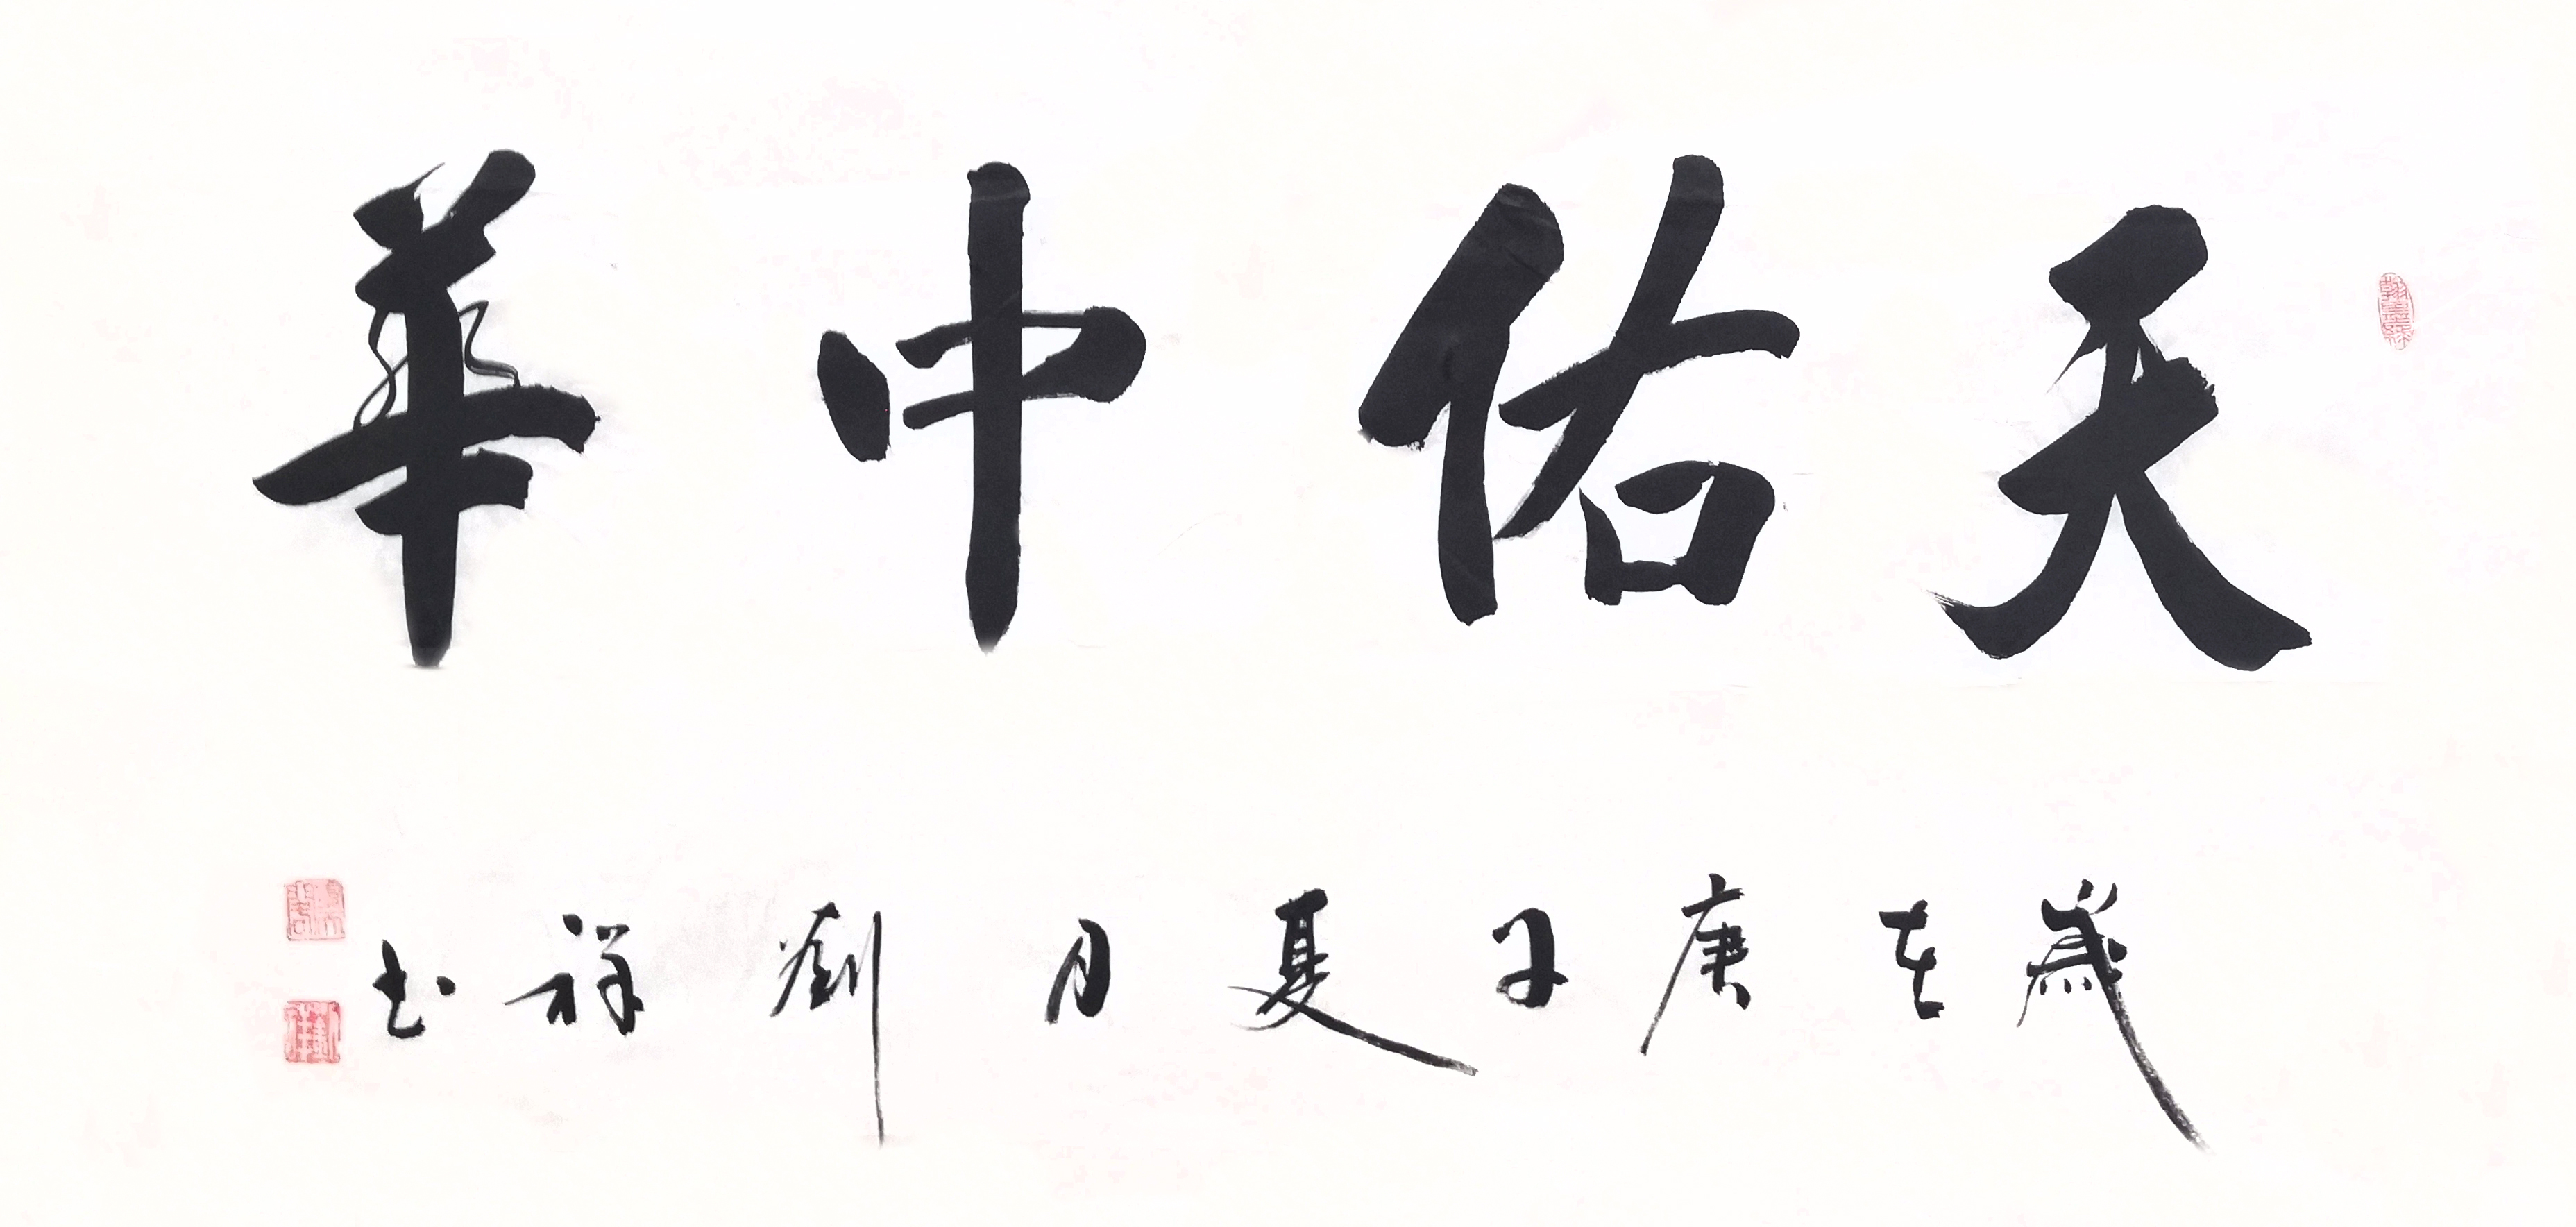 天佑中華
歲在庚子夏月劉祥书